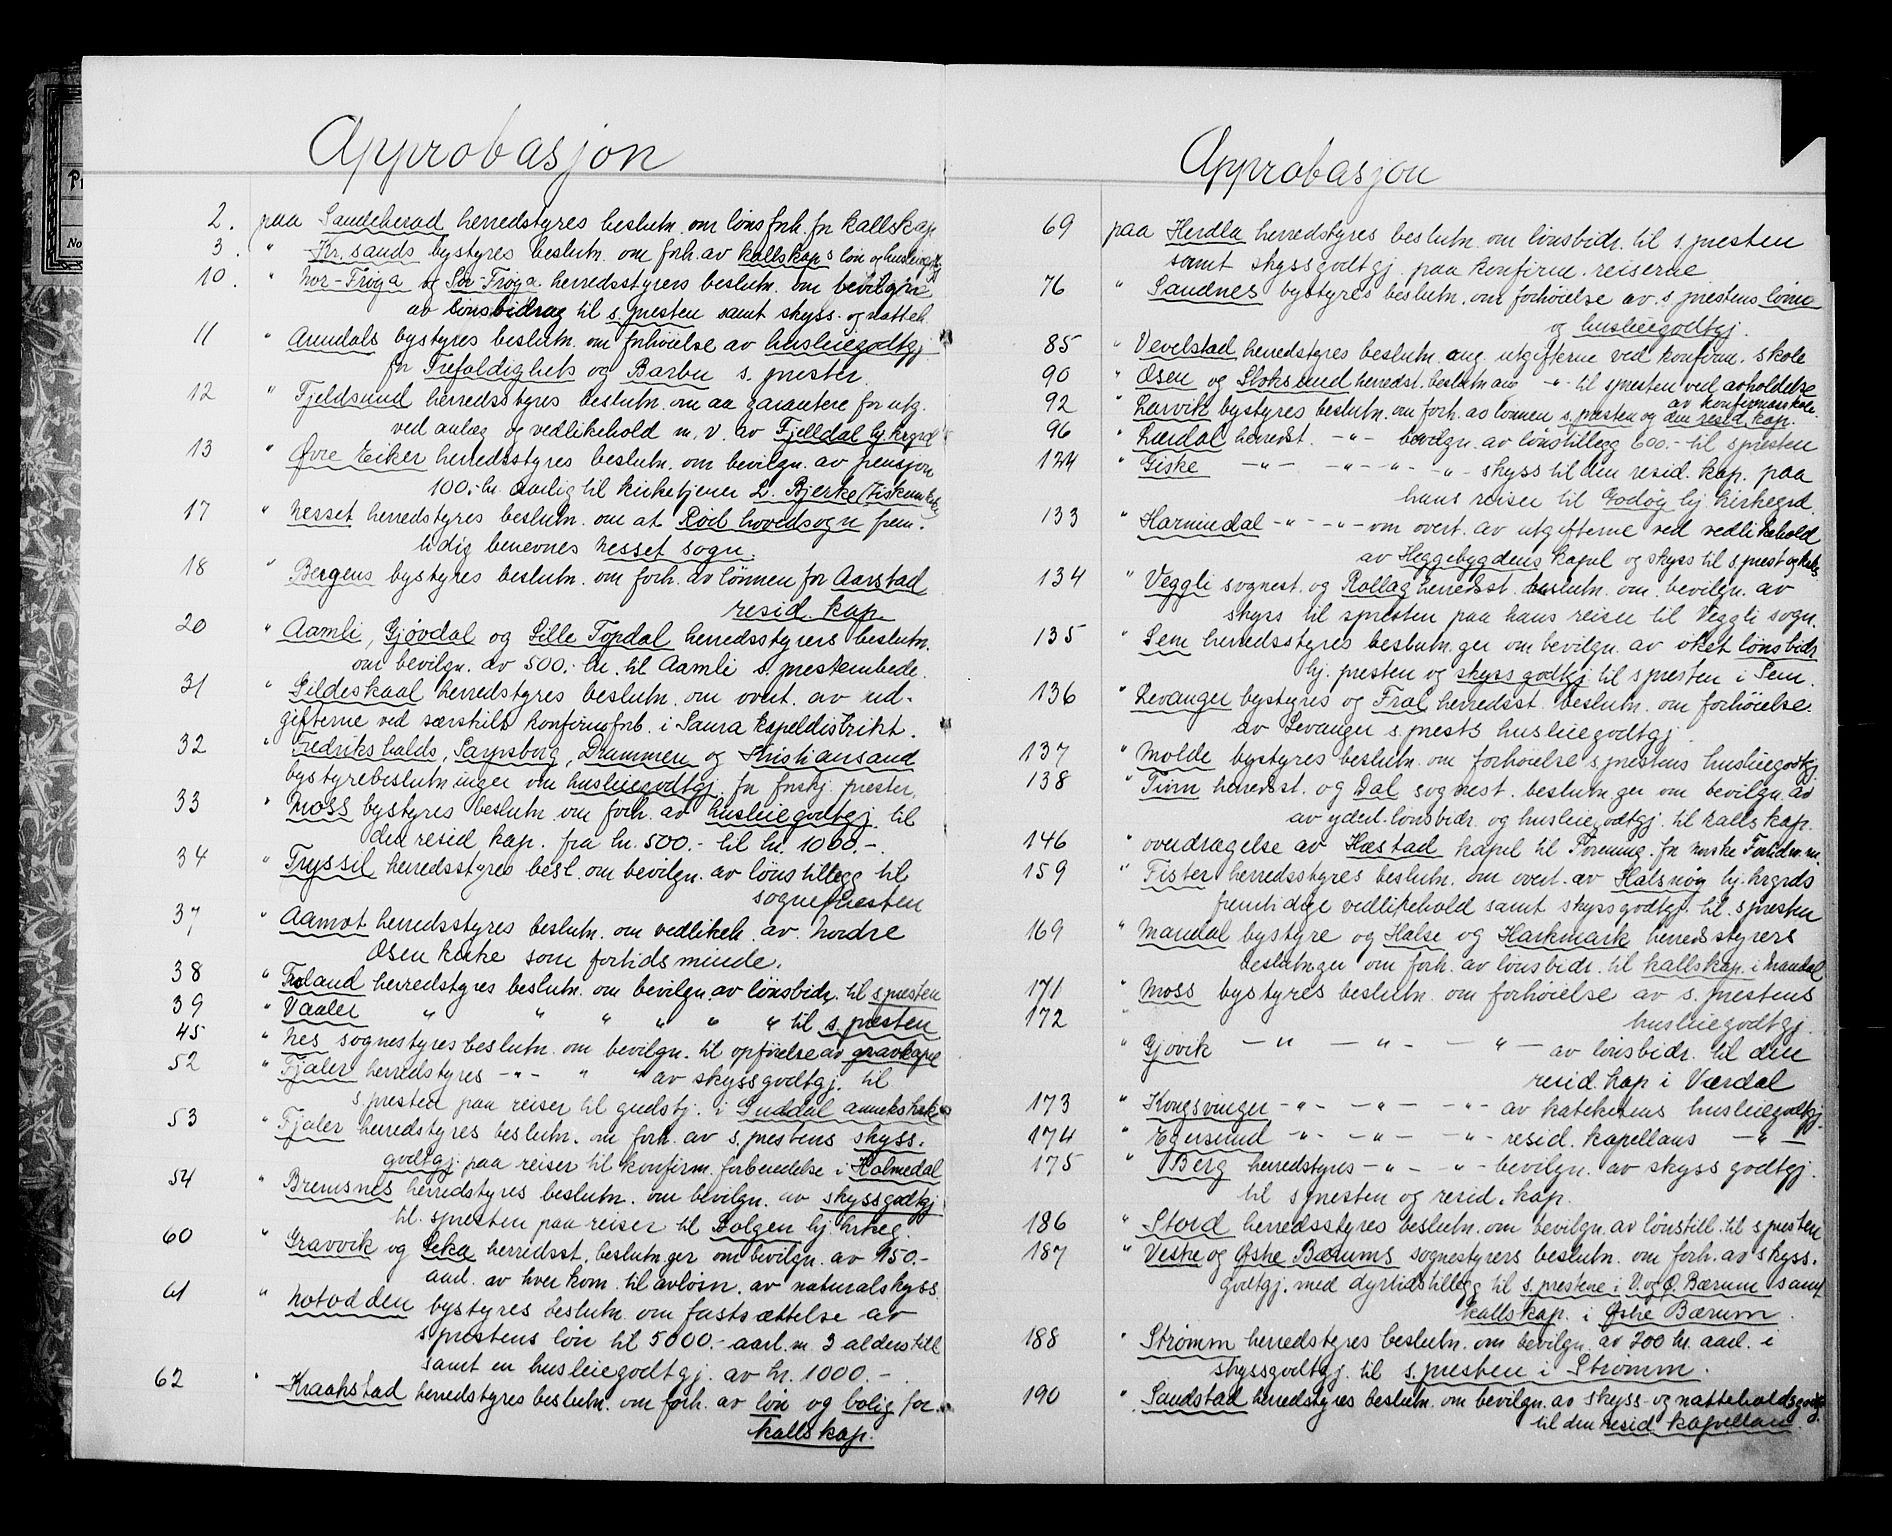 Approbasjon
2. paa Sandeherad herredstyres beslutn. om lønsforh. for kallskap.
3. " Kr.sands bystyres beslutn. om forh. av kallskaps løn og husleiegodtgj.
10. " Nor-Frøya og Sør-Frøya herredsstyrers beslutn. om bevilgn.
av lønsbidrag til s.presten samt skyss- og natteh.
11 " Arendals bystyres beslutn. om forhøielse av husleiegodtgj.
for Trefoldighets og Barbu s. prester.
12 " Fjeldsund herredsstyres beslutn. om aa garantere for utg.
ved anlæg og vedlikehold m. v. av Fjelldal hj.krgrd
13 " Øvre Eiker herredsstyres beslutn. om bevilgn. av pensjon
100,- kr. aarlig til kirketjener L. Bjerke (Fiskum kirke)
17 " Nesset herredstyres beslutn. om at Rød hovedsogn frem-
tidig benevnes Nesset sogn.
18 " Bergens bystyres beslutn. om forh. av lønnen for Aarstad
resid. kap.
20 " Aamli, Gjøvdal og Lille Topdal herredsstyrers beslutn.
om bevilgn. av 500,- kr. til Aamli s.presteembede.
31 " Gildeskaal herredstyres beslutn. om overt. av ud-
gifterne ved særskilt konfirmforb. i Saura kapeldistrikt.
32 " Fredrikshalds, Sarpsborg, Drammen og Kristiansand
bystyrebeslutninger om husleiegodtgj. for forskj. prester.
33 " Moss bystyres beslutn. om forh. av husleiegodtgj. til
den resid kap. fra kr. 500.- til kr. 1000.-.
34 " Tryssil herredsstyres besl. om bevilgn. av lønstillegg til
sognepresten
37 " Aamot herredsstyres beslutn. om vedlikeh. av Nordre
Osen kirke som fortidsminde.
38 " Froland herredstyres beslutn. om bevilgn. av lønsbidr. til s presten
39 " Vaaler " " " " " " til s. presten
45 " Nes sognestyres beslutn. om bevilgn. til opførelse av gravkapel
52 " Fjaler herredstyres -"- " " av skyssgodtgj. til
s.presten paa reiser til gudstj. i Guddal annekskirke
53 " Fjaler herredstyres beslutn. om forh. av s.prestens skyss-
godtgj. paa reiser til konfirm. forberedelse i Holmedal
54 " Bremsnes herredstyres beslutn. om bevilgn. av skyssgodtgj.
til. spresten paa reiser til Bolgen hj. kirkeg.
60 " Gravvik og Leka herredsst. beslutn.ger om bevilgn. av 450.-
aarl. av hver kom. til avløsn. av naturalskyss.
61 " Notodden bystyres beslutn. om fastsættelse av
sprestens løn til 5000.- aarl. m. 3 alderstill
samt en husleiegodtgj. av kr. 1000.-.
62 " Kraakstad herredstyres beslutn. om forh. av løn og bolig for
kallskap.
Approbasjon
69 paa Herdla herredstyres beslutn. om lønsbidr. til s.presten
samt skyssgodtgj. paa konfirm. reiserne
76 " Sandnes bystyres beslutn. om forhøielse av s prestens lønn
og husleiegodtgj.
85 " Vevelstad herredstyres beslutn. ang. utgifterne ved konfirm. skole
90 " Osen og Stoksund herredst. beslutn. -"- til spresten ved avholdelse
av konfirmasskole.
92 " Larvik bystyres beslutn. om forh. av lønnen s.presten og den resid. kap.
96 " Lærdal herredst. -"- bevilgn. av lønstillegg 600.- til s presten
124 " Giske -"- -"- -"- -"- skyss til den resid. kap. paa
hans reiser til Godøy hj. kirkegrd.
133 " Hornindal -"- -"- om overt. av utgifterne ved vedlikehold
av Heggebygdens kapel og skyss til s prest
134 " Veggli sognest. og Rollag herredsst. beslutn. om. bevilgn. av
skyss til spresten paa hans reiser til Veggli sogn.
135 " Sem herredsstyres beslutn.ger om bevilgn. av øket lønsbidr.
hj. presten og skyssgodtgj. til s presten i Sem.
136 " Levanger bystyres og Frol herredsst. beslutn. om forhøielse
av Levanger s.prests husleiegodtgj.
137 " Molde bystyres beslutn. om forhøielse s prestens husleiegodtgj.
138 " Tinn herredsst. og Dal sognest. beslutn.ger om bevilgn. av
av yderl. lønsbidr. og husleiegodtgj. til kallskap.
146 " overdragelse av Hæstad kapel til Forening. for norske Fortidsm.m.
159 " Fister herredsstyres beslutn. om overt. av Halsnøy hj. krgrds
fremtidige vedlikehold samt skyssgodtgj. til. s presten
169 " Mandal bystyre og Halse og Harkmark herredsstyrers
beslutn.ger om forh. av lønsbidr. til kallskap. i Mandal
171 " Moss bystyres beslutn. om forhøielse av s. prestens
172 " husleiegodtgj.
" Gjøvik -"- -"- -"- av lønsbidr. til den
resid. kap i Værdal
173 " Kongsvinger -"- -"- -"- av katekerens husleiegodtgj.
174 " Egersund -"- -"- -"- resid. kapellans -"-
175 " Berg herredstyres -"- -"- bevilgn. av skyssgodtgj.
til s presten og resid. kap.
186 " Stord herredsstyres beslutn. om bevilgn. av lønstill. til s presten
187 " Vestre og Østre Bærums sognestyrers beslutn. om forh. av skyss-
godtgj. med dyrtidstillegg til s. prestene i V. og Ø. Bærum samt
kallskap. i Østre Bærum.
188 " Strømm herredstyres beslutn. om bevilgn. av 200 kr. aarl. i
skyssgodtgj. til s.presten i Strømm.
190 " Sandstad herredstyres beslutn. om bevilgn. av skyss- og natteholdsgodtgj.
til den resid. kapellan.